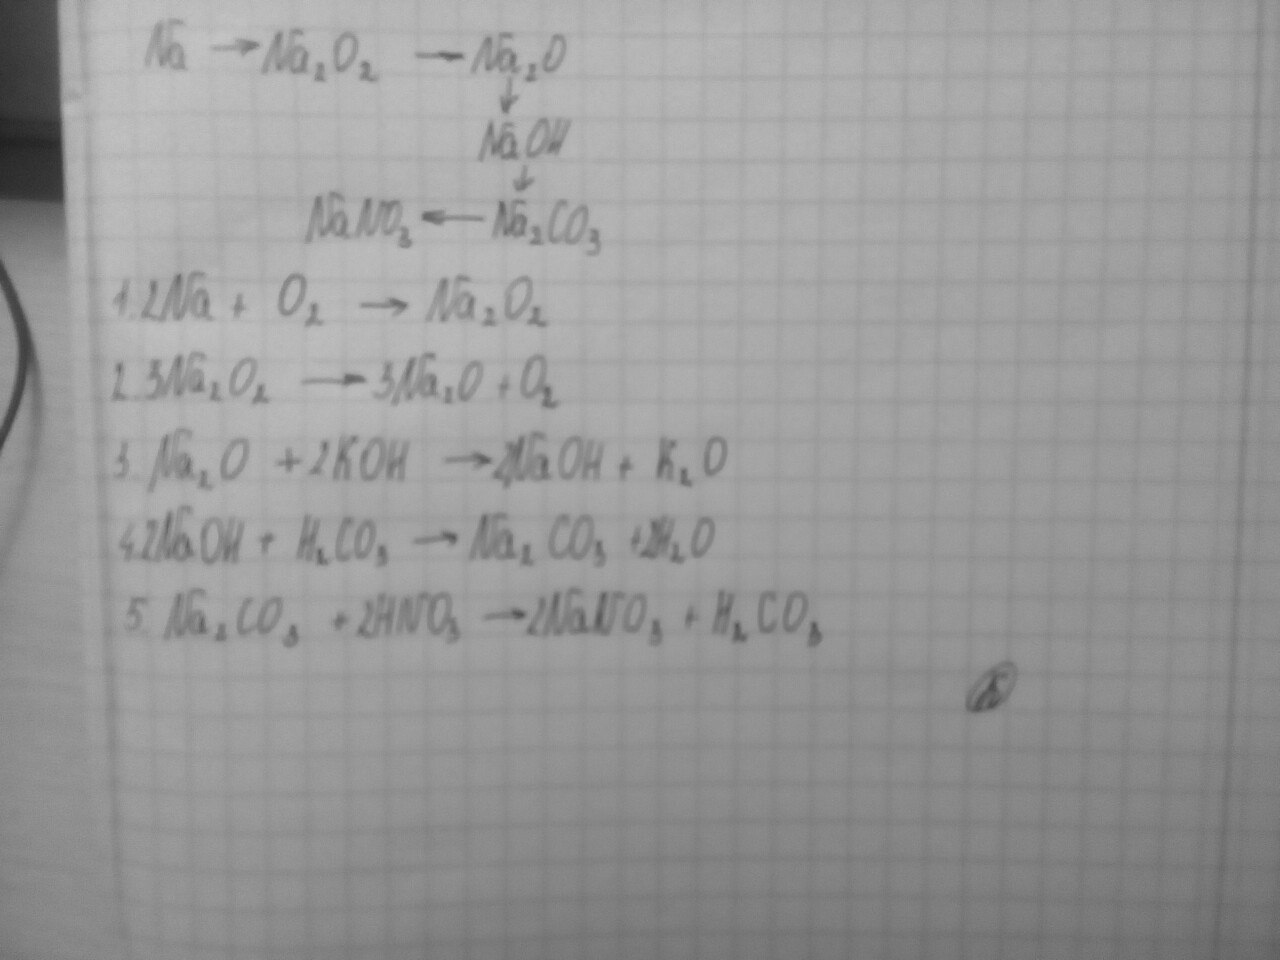 Na → Na₂O₂ → Na₂O
↓
NaOH
↓
NaNO₃ ← Na₂CO₃
1. 2Na + O₂ → Na₂O₂
2. 3Na₂O₂ → 3Na₂O + O₂
3. Na₂O + 2KOH → 2NaOH + K₂O
4. 2NaOH + H₂CO₃ → Na₂CO₃ + 2H₂O
5. Na₂CO₃ + 2HNO₃ → 2NaNO₃ + H₂CO₃